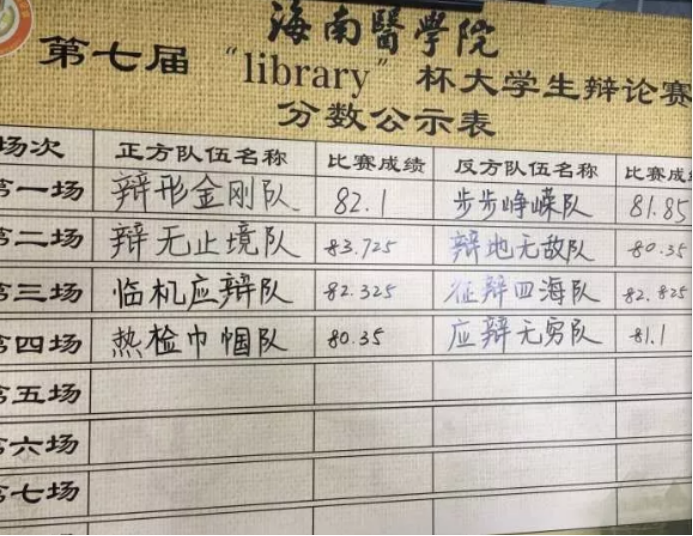 海南醫學院
第七届“library”杯大学生辩论赛
分数公示表
场次 正方队伍名称 比赛成绩 反方队伍名称 比赛成绩
第一场 辩形金刚队 82.1 步步峥嵘队 81.85
第二场 辩无止境队 83.725 辩地无敌队 80.35
第三场 临机应辩队 82.325 征辩四海队 82.825
第四场 热检巾帼队 80.35 应辩无穷队 81.1
第五场
第六场
第七场